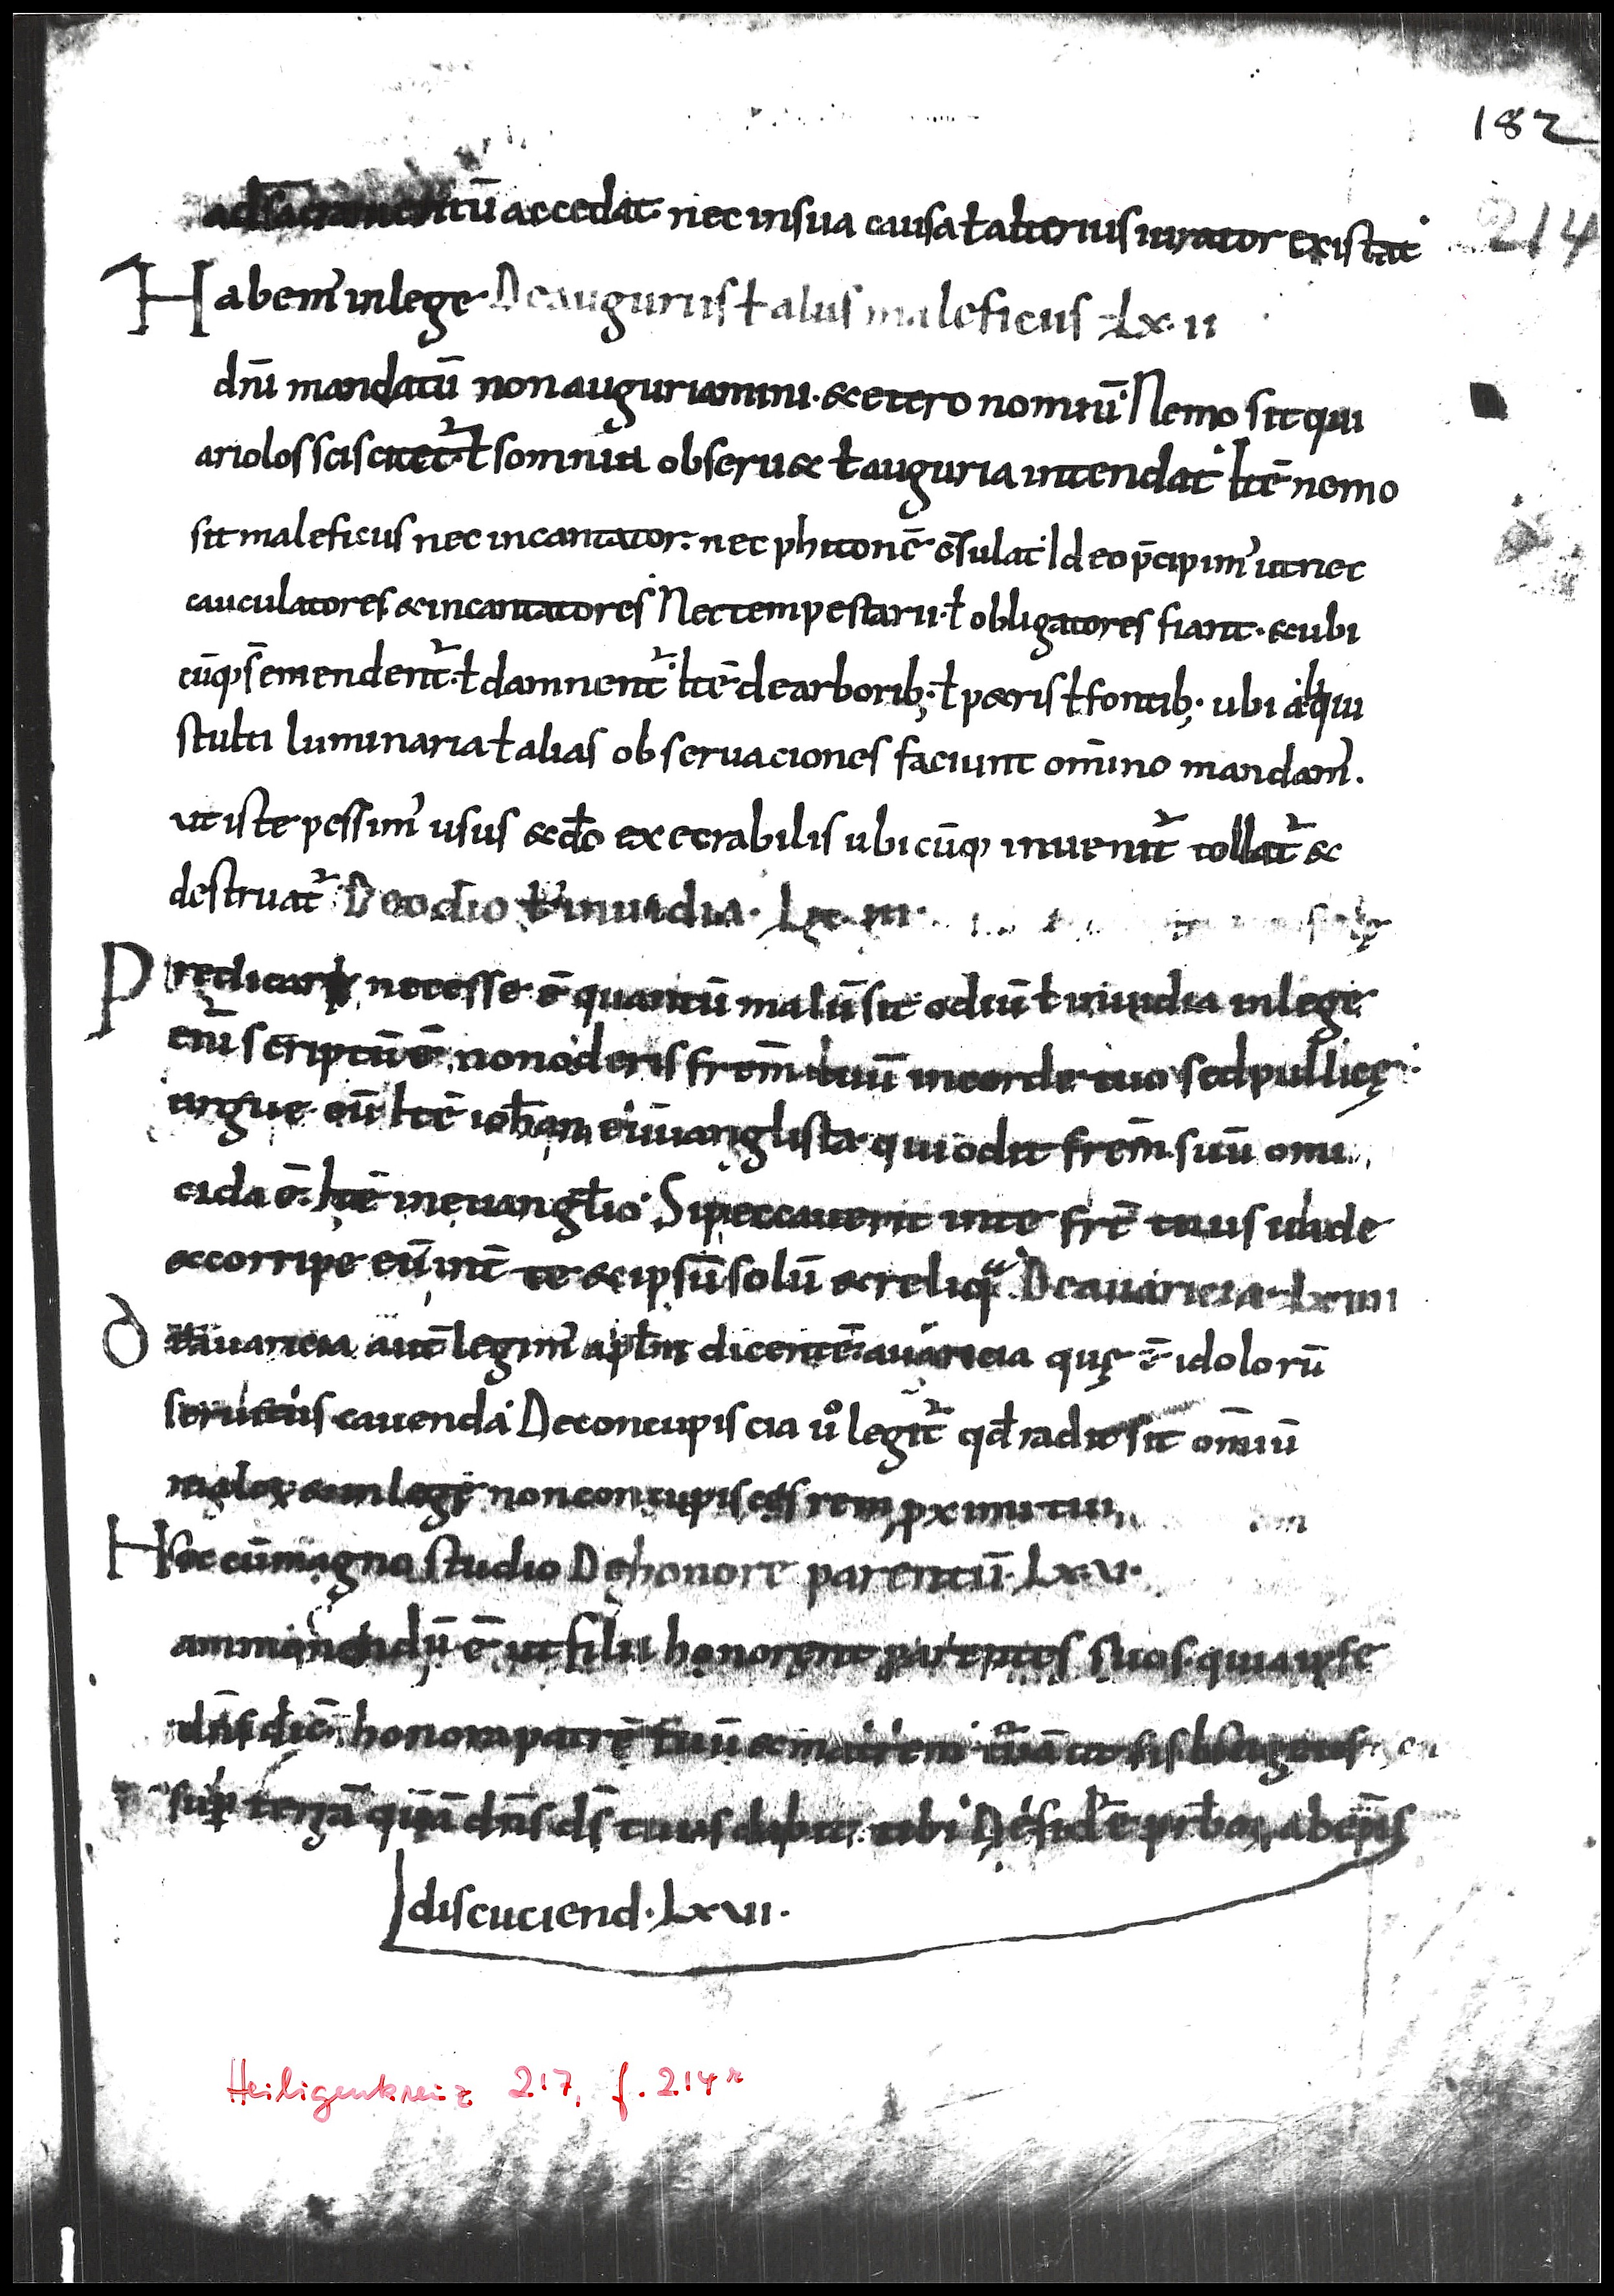 182
adsacramentū accedat· nec insua causa ł alterius iurator existat
214
Habem᾽ inlege· Deauguriis ł aliis maleficiis Lx·ii
dn̄i mandatū non auguriamini· & etero nomiū· Nemo sit qui
ariolos sciscitet᷑· ł somnia obseru& ł auguria intendat· Itē nemo
sit maleficus nec incantator· nec phitonē c̄sulat· Ideo p̄cipim᾽ ut nec
cauculatores & incantatores Nec tempestarii· ł obligatores fiant· & ubi
cūq; s̄ emendent᷑· ł damnent᷑· Itē dearborib;· ł p&ris ł fontib;· ubi aliqui
stulti luminaria ł alias obseruaciones faciunt om̄ino mandam᾽·
ut iste pessim᾽ usus & dō execrabilis ubicūq; inuenit᷑ tollat᷑ &
destruat᷑· Deodio ł inuidia· Lx·iii·
Predicare necesse ē quantū malū sit odiū ł inuidia inlege
eni᷑ scriptū ē· non oderis frem̄ tuū incorde tuo sed pullicę·
argue eū Itē ioh̄an euuanglista· qui odit frem̄ suū omi
cida ē· Itē ineuangłio· Si peccauerit inte fr̄ tuus uade
& corripe eū int̄ te & ipsū solū & reliq̄· Deauaricia· Lxiiii
Deauaricia aut̄ legim᾽ apłm dicentē· auaricia quę ē idolorū
seruitus cauenda· Deconcupiscia u͛o legit᷑ qđ radix sit om̄iū
maloꝝ & inlege non concupisces rem pximi tui
Hoc cū magno studio Dehonore parentū· Lxv·
ammonendū ē ut filii honorent parentes suos· quia ipse
dn̄s dic̄· honora patrē tuū & matrem tuā ut sis longeuus
sup terrā quā dn̄s ds̄ tuus dabit tibi Defide p̄rboꝝ abep̄is
discuciend· Lxvii·
Heiligenkreuz 217, f. 214ʳ